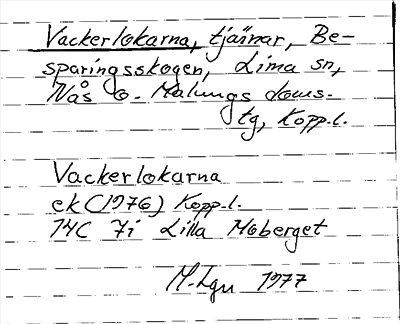 Vackerlokarna, tjärnar, Be-
sparingsskogen, Lima sn,
Nås o. Malungs doms-
tg, Kopp.l.
Vackerlokarna
ek (1976) Kopp.l.
14C 7i Lilla Moberget
1977